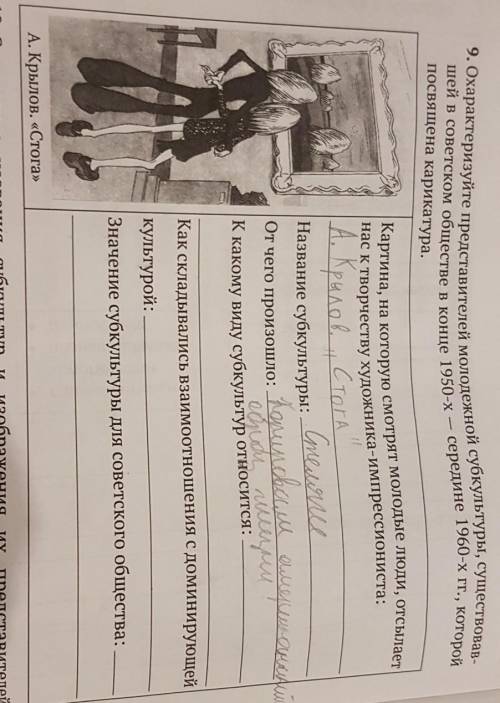 9. Охарактеризуйте представителей молодежной субкультуры, существовав-
шей в советском обществе в конце 1950-х — середине 1960-х гг., которой
посвящена карикатура.
А. Крылов. «Стога»
Картина, на которую смотрят молодые люди, отсылает
нас к творчеству художника-импрессиониста:
А. Крылов. "Стога"
Название субкультуры: Стиляги
От чего произошло: Копировали американский
образ жизни
К какому виду субкультур относится:
Как складывались взаимоотношения с доминирующей
культурой:
Значение субкультуры для советского общества:
субкультур и изображения их представителей